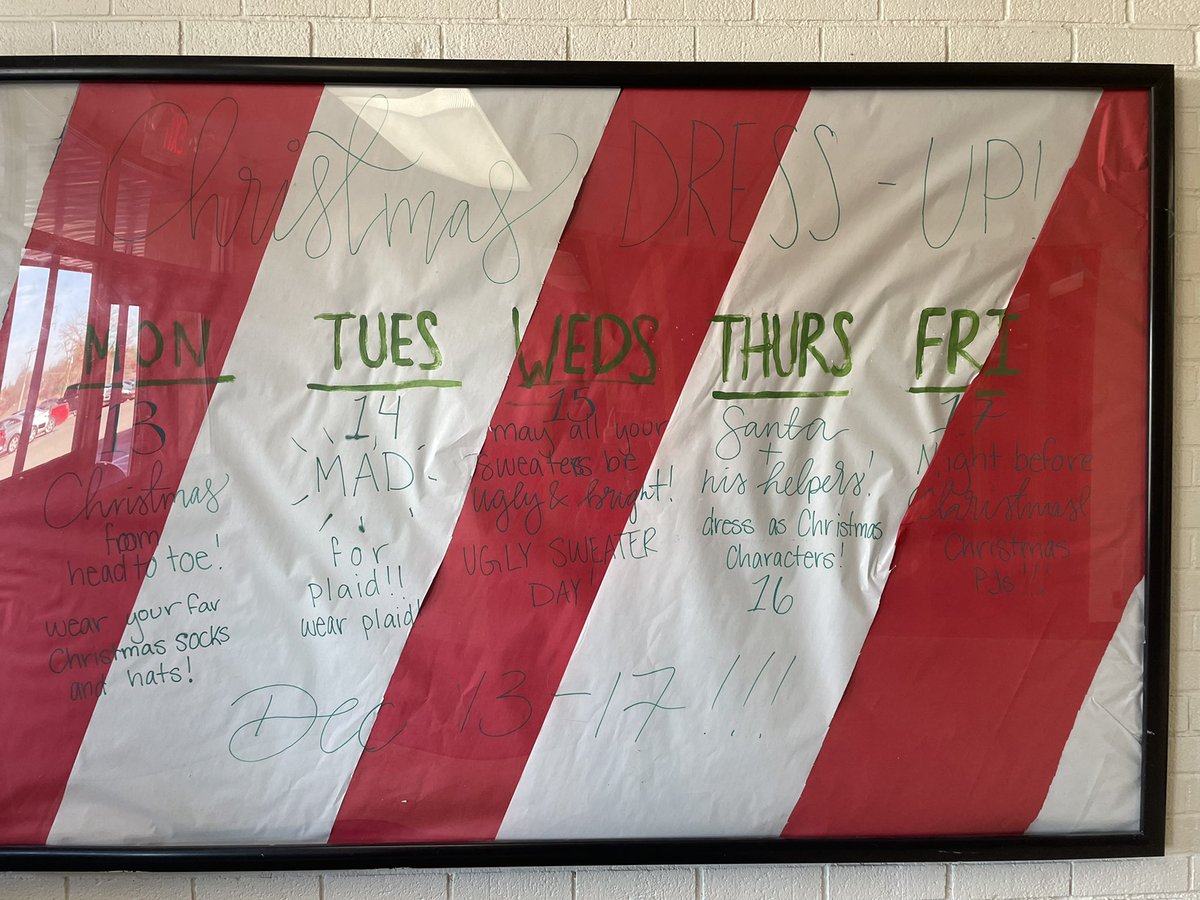 Christmas DRESS-UP!
MON
13
Christmas
from
head to toe!
wear your fav
Christmas socks
and hats!
TUES
14
MAD
for
plaid!!
wear plaid!
WEDS
15
may all your
sweaters be
ugly & bright!
UGLY SWEATER
DAY!
THURS
Santa
+
his helpers!
dress as Christmas
Characters!
16
FRI
17
Night before
Christmas!
Christmas
PJs!!!
Dec 13-17!!!